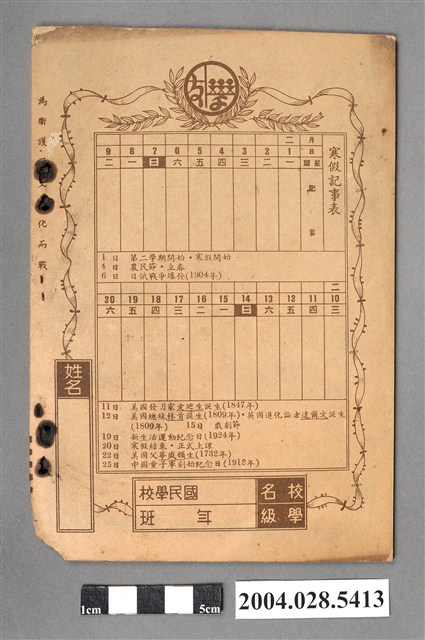 寒假記事表
月 二
日 1 2 3 4 5 6 7 8 9
星期 一 二 三 四 五 六 日 一 二
記事
1日 第二學期開始・寒假開始
4日 農民節・立春
6日 日俄戰爭爆發(1904年)
二
10 11 12 13 14 15 16 17 18 19 20
三 四 五 六 日 一 二 三 四 五 六
11日 美國發明家愛迪生誕生(1847年)
12日 美國總統林肯誕生(1809年)・英國進化論者達爾文誕生
(1809年) 15日 戲劇節
19日 新生活運動紀念日(1924年)
20日 寒假結束・正式上課
22日 美國父華盛頓生(1732年)
25日 中國童子軍創始紀念日(1912年)
校名 國民學校
學級 年 班
姓名
為衛護
化而戰!
1cm 5cm
2004.028.5413